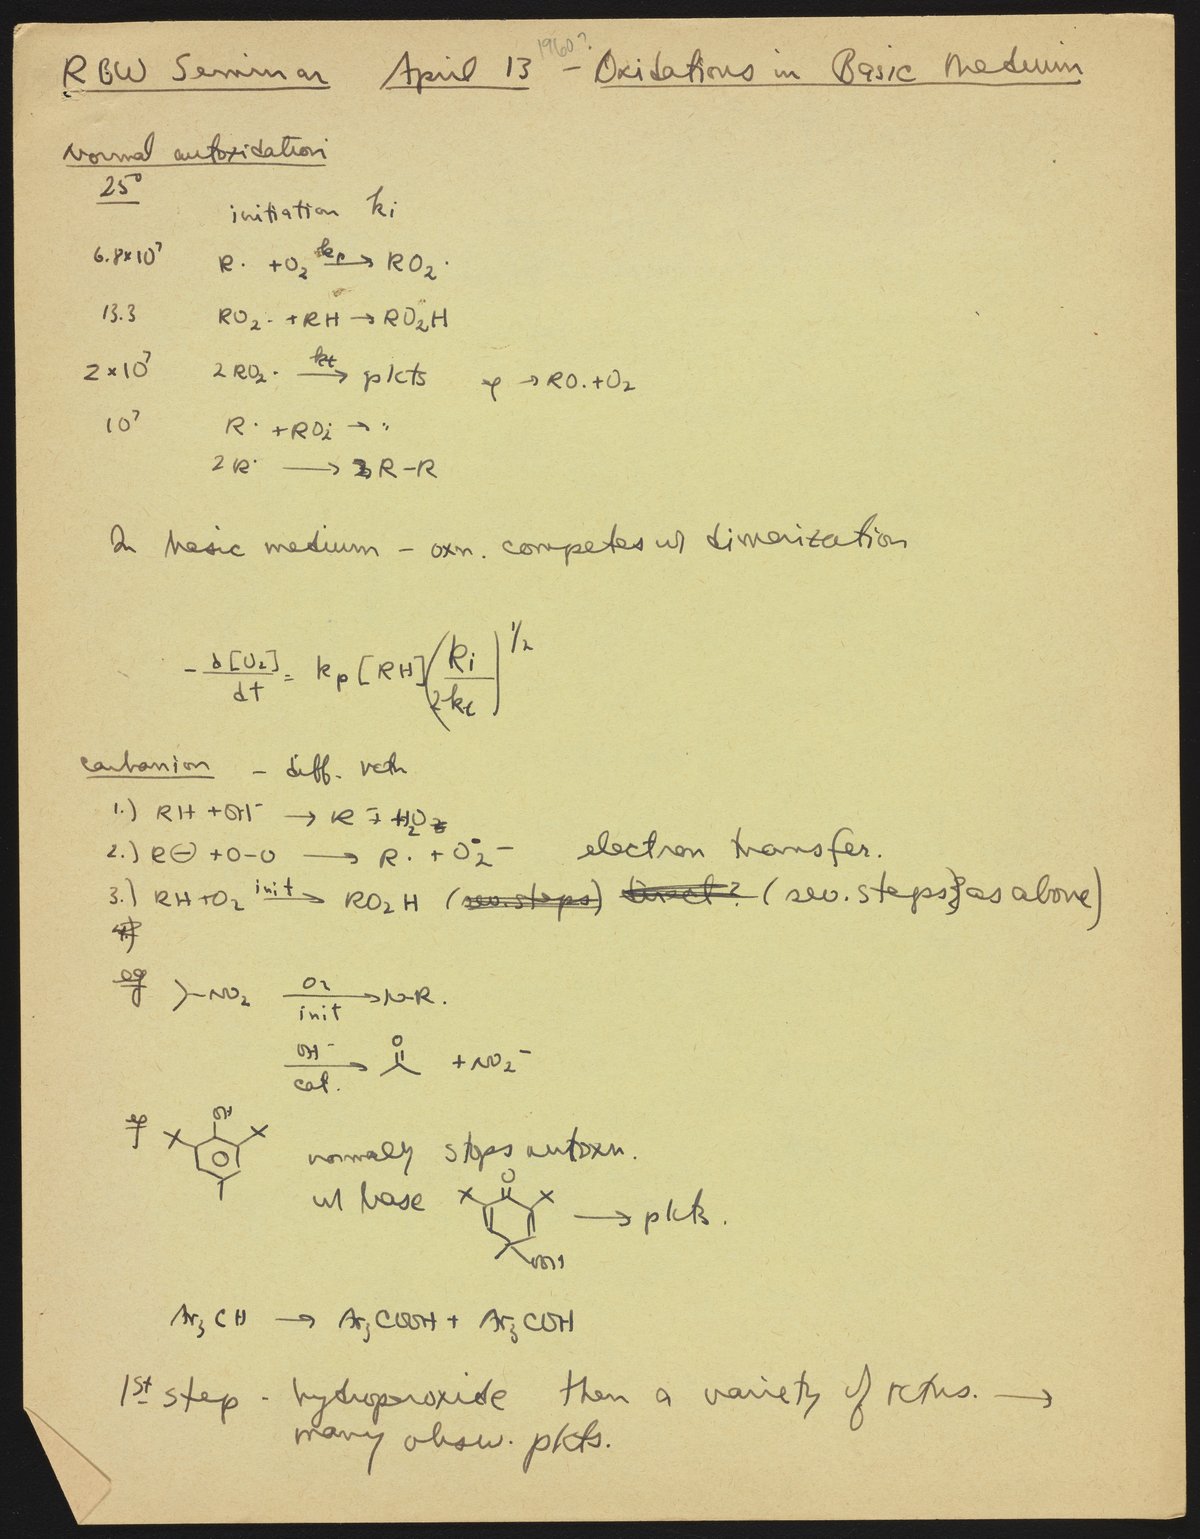 1960?
RBW Seminar April 13 - Oxidations in Basic Medium
Normal autoxidation
25°
initiation ki
6.8×10⁷ R· + O₂ kp→ RO₂·
13.3 RO₂· + RH → RO₂H
2×10⁷ 2RO₂· kt→ pdcts → RO· + O₂
10⁷ R· + RO₂· → "
2R· → R-R
In basic medium - oxn. competes w/ dimerization
-d[O₂]/dt = kp[RH](Ri/2kt)^1/2
carbanion - diff. rctn
1.) RH + OH⁻ → R⁻ + H₂O
2.) R⊖ + O-O → R· + O₂·⁻ electron transfer.
3.) RH + O₂ init→ RO₂H (sev. steps) Direct? (sev. steps as above)
eg >-NO₂ O₂ / init → N.R.
OH⁻ / cat. → O + NO₂⁻
eg OH X X normally stops autoxn.
w/ base O X X OOH → pdcts.
Ar₃CH → Ar₃COOH + Ar₃COH
1st step - hydroperoxide then a variety of rctns. →
many obsv. pdcts.